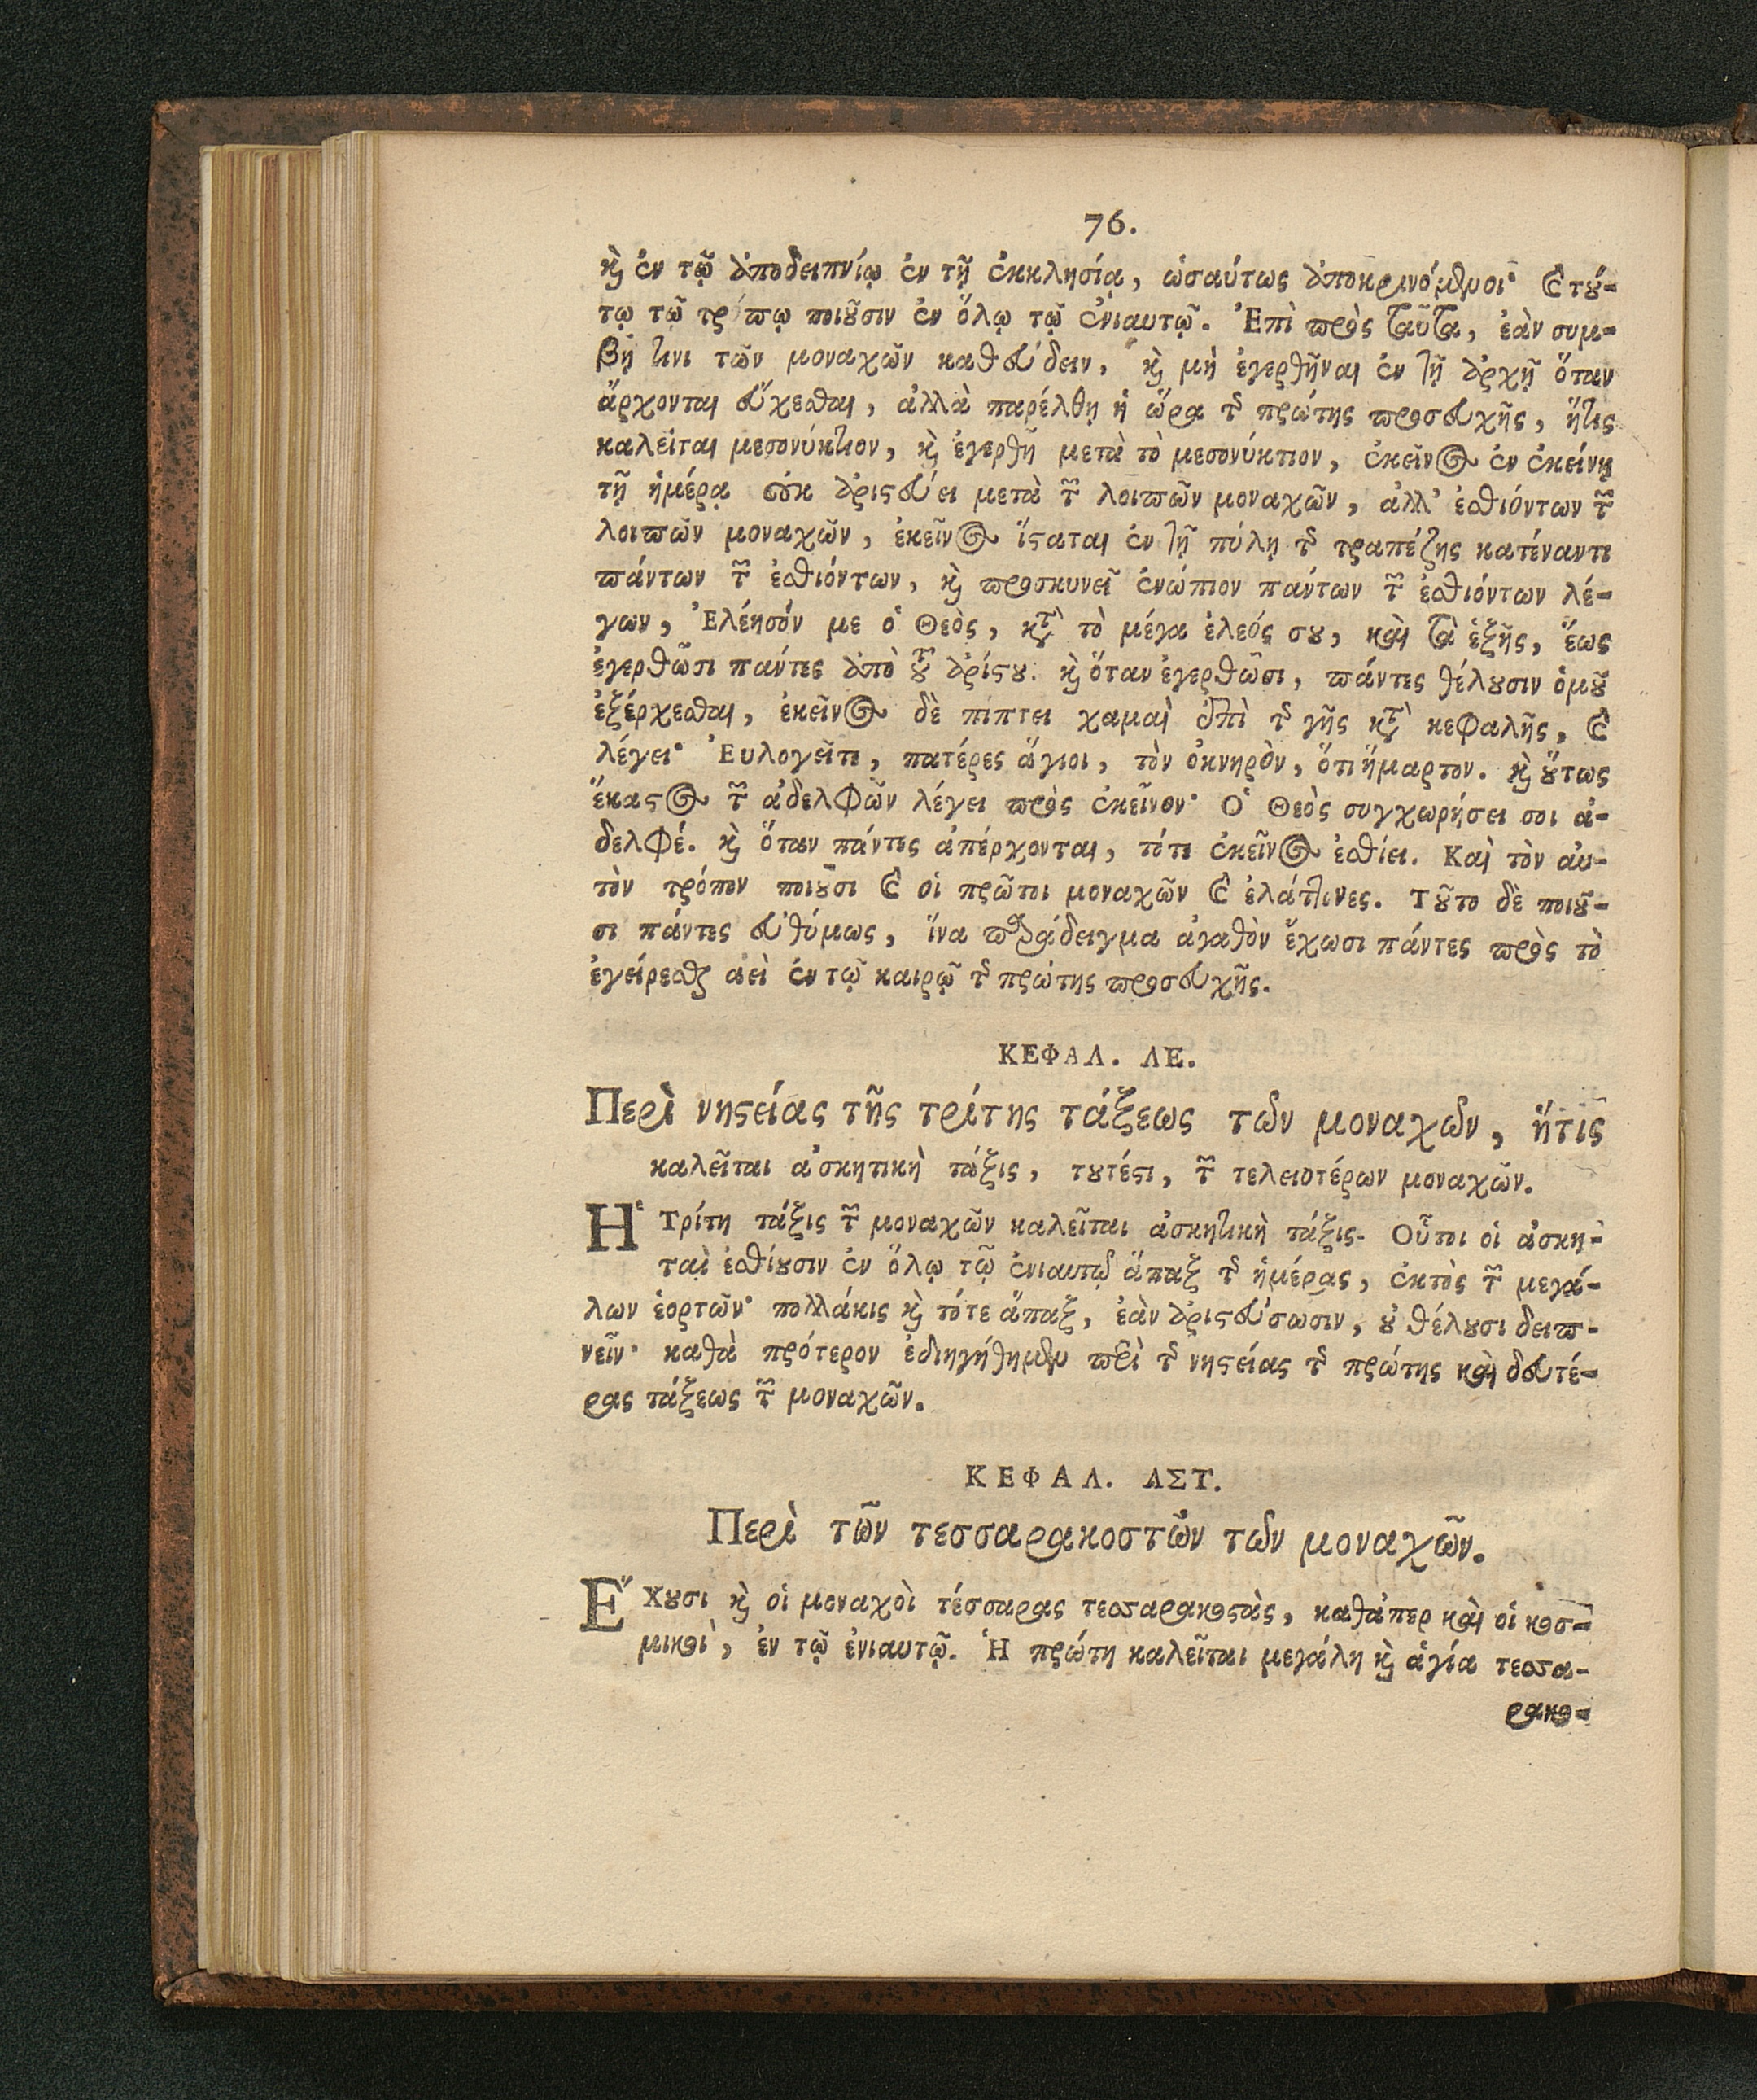 76.
καὶ ἐν τῷ ἀποδειπνίῳ ἐν τῇ ἐκκλησίᾳ, ὡσαύτως ἀποκρινόμενοι· καὶ τού-
τῳ τῷ τρόπῳ ποιοῦσιν ἐν ὅλῳ τῷ ἐνιαυτῷ. Ἐπὶ πρὸς ταῦτα, ἐὰν συμ-
βῇ τινι τῶν μοναχῶν καθεύδειν, καὶ μὴ ἐγερθῆναι ἐν τῇ ἀρχῇ ὅταν
ἄρχονται εὔχεσθαι, ἀλλὰ παρέλθῃ ἡ ὥρα τῆς πρώτης προσευχῆς, ἥτις
καλεῖται μεσονύκτιον, καὶ ἐγερθῇ μετὰ τὸ μεσονύκτιον, ἐκεῖνος ἐν ἐκείνῃ
τῇ ἡμέρᾳ οὐκ ἀριστεύει μετὰ τῶν λοιπῶν μοναχῶν, ἀλλ' ἐσθιόντων τῶν
λοιπῶν μοναχῶν, ἐκεῖνος ἵσταται ἐν τῇ πύλῃ τῆς τραπέζης κατέναντι
πάντων τῶν ἐσθιόντων, καὶ προσκυνεῖ ἐνώπιον πάντων τῶν ἐσθιόντων λέ-
γων, Ἐλέησόν με ὁ Θεὸς, κατὰ τὸ μέγα ἐλεός σου, καὶ τὰ ἑξῆς, ἕως
ἐγερθῶσι πάντες ἀπὸ τοῦ ἀρίστου. καὶ ὅταν ἐγερθῶσι, πάντες θέλουσιν ὁμοῦ
ἐξέρχεσθαι, ἐκεῖνος δὲ πίπτει χαμαὶ ἐπὶ τῆς γῆς κατὰ κεφαλῆς, καὶ
λέγει· Ἐυλογεῖτε, πατέρες ἅγιοι, τὸν ὀκνηρὸν, ὅτι ἥμαρτον. καὶ οὕτως
ἕκαστος τῶν ἀδελφῶν λέγει πρὸς ἐκεῖνον· Ὁ Θεὸς συγχωρήσει σοι ἀ-
δελφέ. καὶ ὅταν πάντες ἀπέρχονται, τότε ἐκεῖνος ἐσθίει. Καὶ τὸν αὐ-
τὸν τρόπον ποιοῦσι καὶ οἱ πρῶτοι μοναχῶν καὶ ἐλάττονες. Τοῦτο δὲ ποιοῦ-
σι πάντες εὐθύμως, ἵνα παράδειγμα ἀγαθὸν ἔχωσι πάντες πρὸς τὸ
ἐγείρεσθαι ἀεὶ ἐν τῷ καιρῷ τῆς πρώτης προσευχῆς.
ΚΕΦΑΛ. ΛΕ.
Περὶ νηστείας τῆς τρίτης τάξεως τῶν μοναχῶν, ἥτις
καλεῖται ἀσκητικὴ τάξις, τουτέστι, τῶν τελειοτέρων μοναχῶν.
Ἡ Τρίτη τάξις τῶν μοναχῶν καλεῖται ἀσκητικὴ τάξις. Οὗτοι οἱ ἀσκη-
ταὶ ἐσθίουσιν ἐν ὅλῳ τῷ ἐνιαυτῷ ἅπαξ τῆς ἡμέρας, ἐκτὸς τῶν μεγά-
λων ἑορτῶν· πολλάκις καὶ τότε ἅπαξ, ἐὰν ἀριστεύσωσιν, οὐ θέλουσι δειπ-
νεῖν· καθὰ πρότερον ἐδιηγήθημεν περὶ τῆς νηστείας τῆς πρώτης καὶ δευτέ-
ρας τάξεως τῶν μοναχῶν.
ΚΕΦΑΛ. ΛΣΤ.
Περὶ τῶν τεσσαρακοστῶν τῶν μοναχῶν.
Ἔχουσι καὶ οἱ μοναχοὶ τέσσαρας τεσσαρακοστὰς, καθάπερ καὶ οἱ κοσ-
μικοὶ, ἐν τῷ ἐνιαυτῷ. Ἡ πρώτη καλεῖται μεγάλη καὶ ἁγία τεσσα-
ρακο-